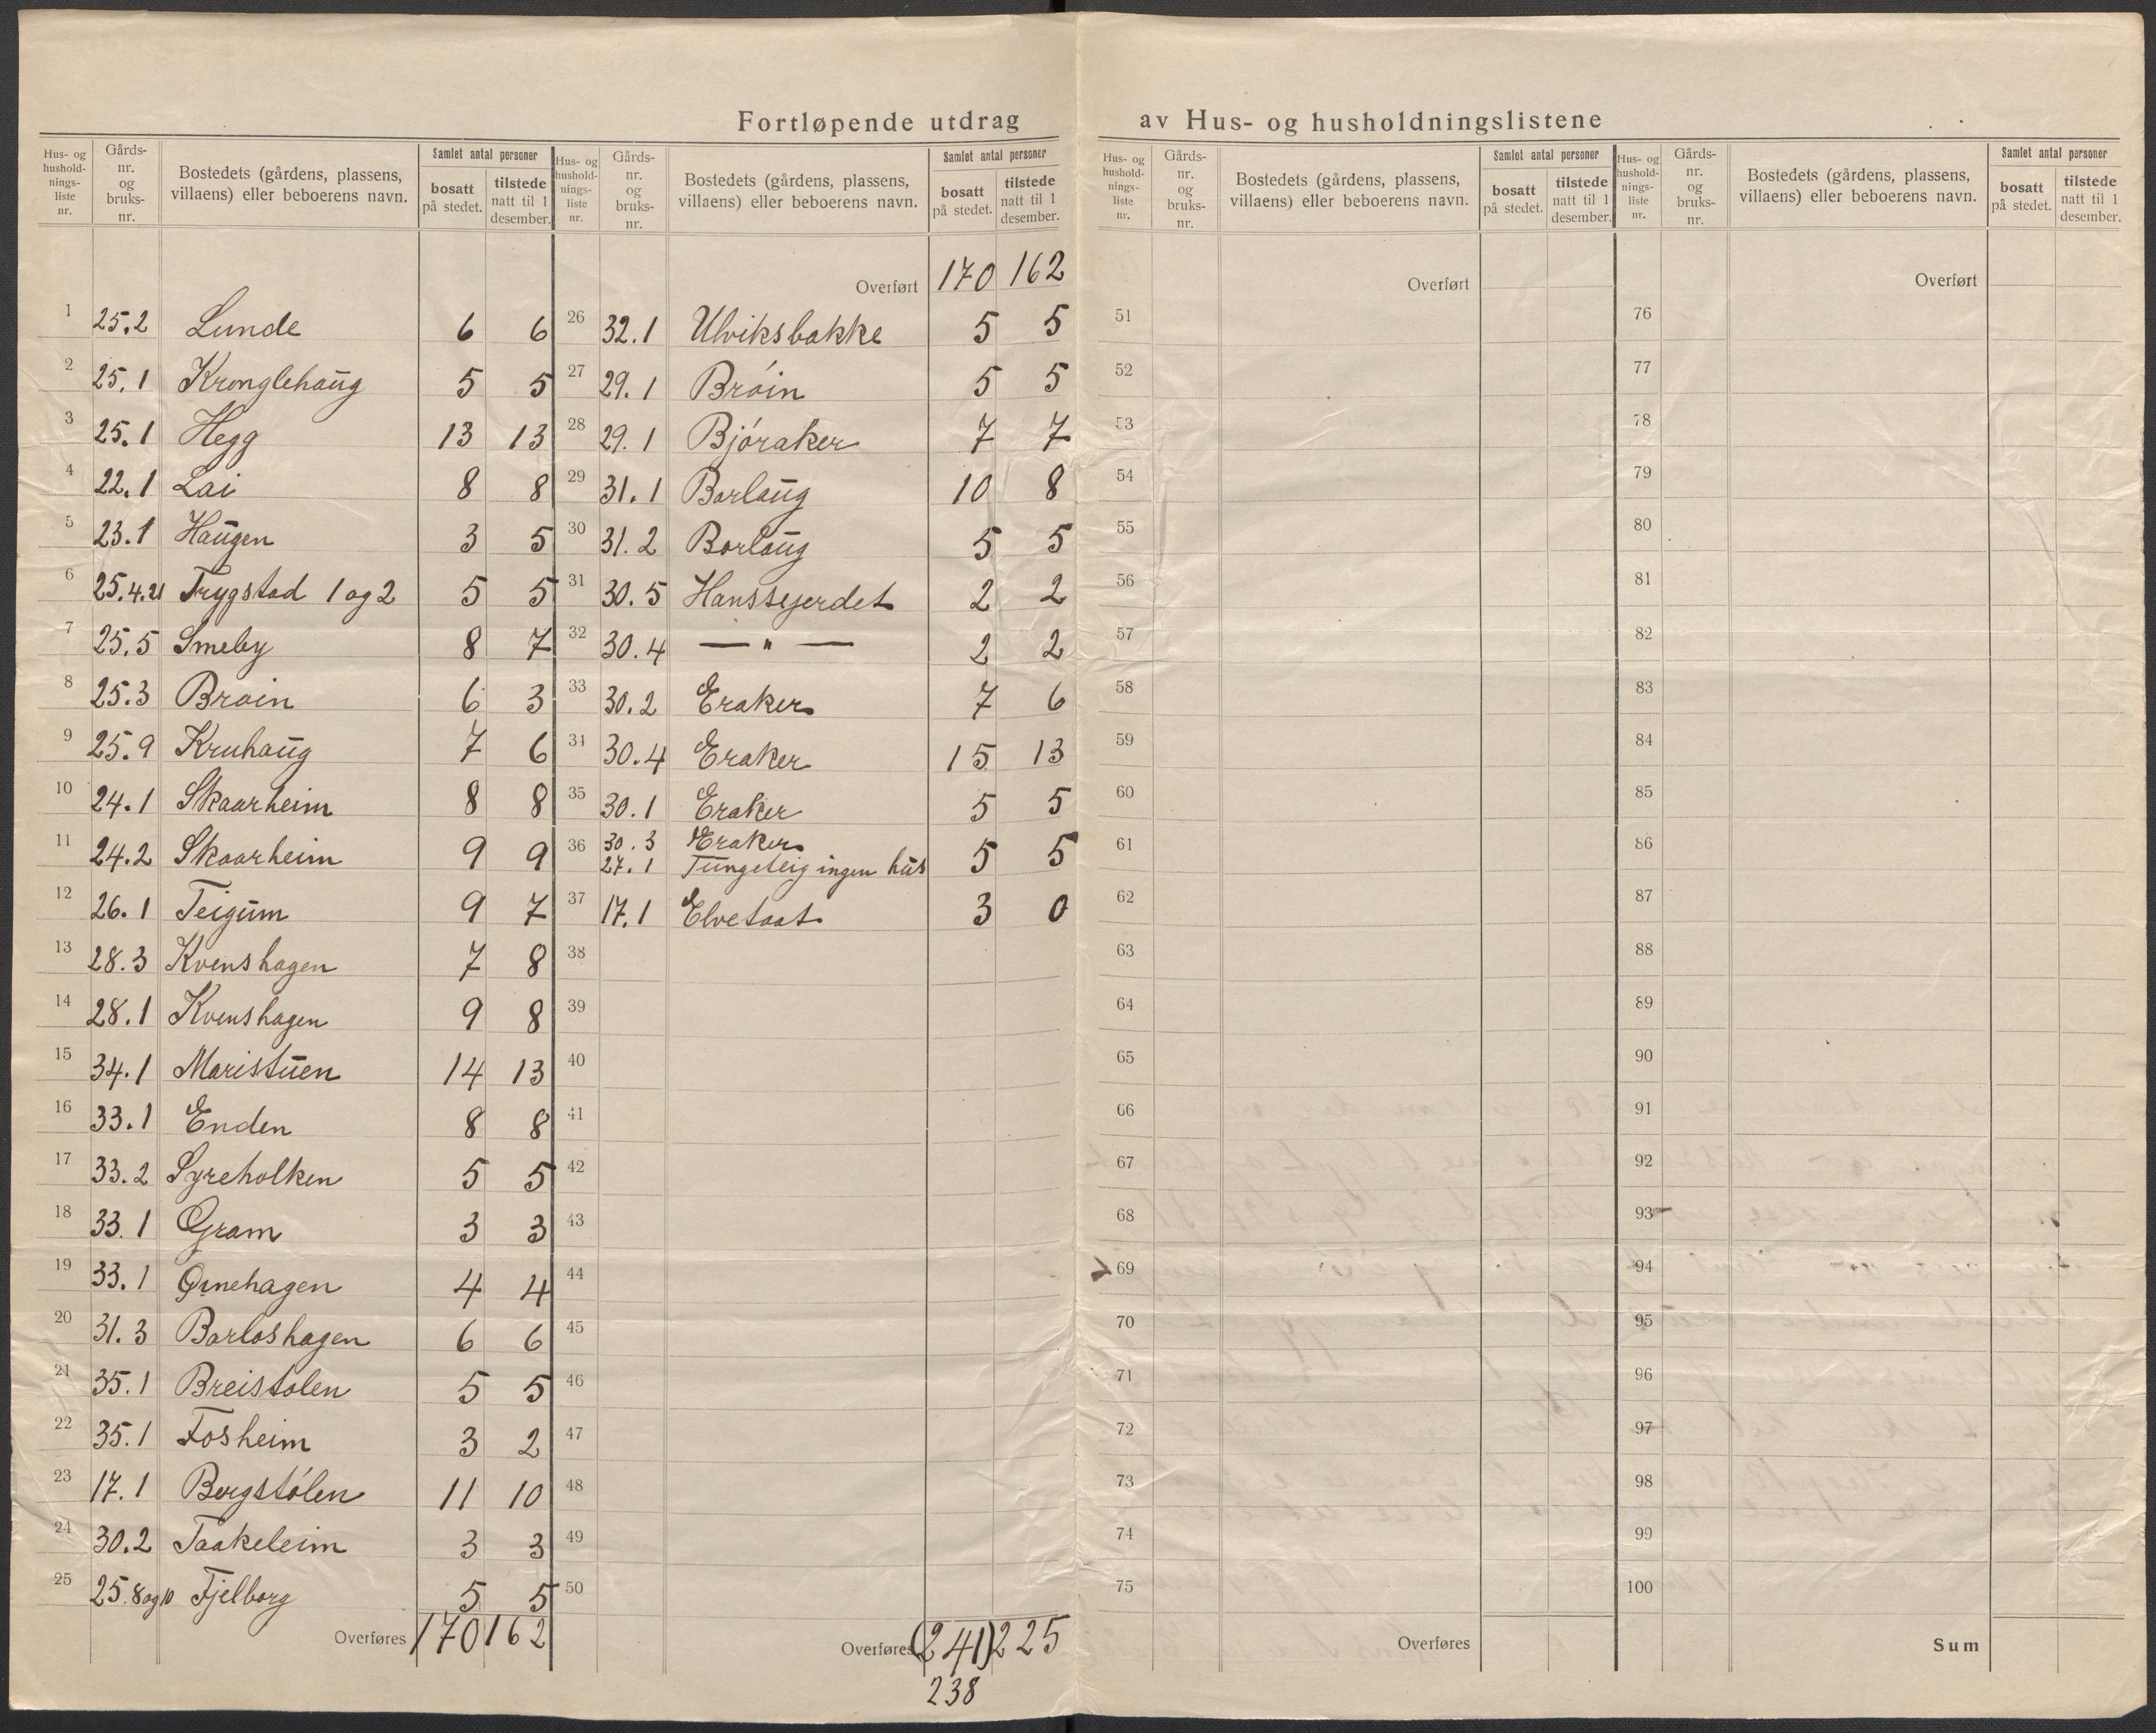 Fortløpende utdrag av Hus- og husholdningslistene
Hus- og hushold-nings-liste nr. Gårds-nr. og bruks-nr. Bostedets (gårdens, plassens, villaens) eller beboerens navn. Samlet antal personer bosatt på stedet. tilstede natt til 1 desember.
1 25.2 Lunde 6 6
2 25.1 Kronglehaug 5 5
3 25.1 Hegg 13 13
4 22.1 Lai 8 8
5 23.1 Haugen 3 5
6 25.4.21 Trygstad 1 og 2 5 5
7 25.5 Smeby 8 7
8 25.3 Broin 6 3
9 25.9 Kruhaug 7 6
10 24.1 Skaarheim 8 8
11 24.2 Skaarheim 9 9
12 26.1 Teigum 9 7
13 28.3 Kvenshagen 7 8
14 28.1 Kvenshagen 9 8
15 34.1 Maristuen 14 13
16 33.1 Enden 8 8
17 33.2 Syreholken 5 5
18 33.1 Gram 3 3
19 33.1 Ørnehagen 4 4
20 31.3 Borloshagen 6 6
21 35.1 Breistølen 5 5
22 35.1 Fosheim 3 2
23 17.1 Borgstólen 11 10
24 30.2 Taakeleim 3 3
25 25.8og10 Fjelborg 5 5
Overføres 170 162
Hus- og hushold-nings-liste nr. Gårds-nr. og bruks-nr. Bostedets (gårdens, plassens, villaens) eller beboerens navn. Samlet antal personer bosatt på stedet. tilstede natt til 1 desember.
Overført 170 162
26 32.1 Ulviksbakke 5 5
27 29.1 Bróin 5 5
28 29.1 Bjóraker 7 7
29 31.1 Borlaug 10 8
30 31.2 Borlaug 5 5
31 30.5 Hansgjerdet 2 2
32 30.4 — " — 2 2
33 30.2 Eraker 7 6
34 30.4 Eraker 15 13
35 30.1 Eraker 5 5
36 30.3 Eraker
27.1 Tungeteig ingen hus 5 5
37 17.1 Elvetaat 3 0
38
39
40
41
42
43
44
45
46
47
48
49
50
Overføres (241) 225
238
Hus- og hushold-nings-liste nr. Gårds-nr. og bruks-nr. Bostedets (gårdens, plassens, villaens) eller beboerens navn. Samlet antal personer bosatt på stedet. tilstede natt til 1 desember.
Overført
51
52
53
54
55
56
57
58
59
60
61
62
63
64
65
66
67
68
69
70
71
72
73
74
75
Overføres
Hus- og hushold-nings-liste nr. Gårds-nr. og bruks-nr. Bostedets (gårdens, plassens, villaens) eller beboerens navn. Samlet antal personer bosatt på stedet. tilstede natt til 1 desember.
Overført
76
77
78
79
80
81
82
83
84
85
86
87
88
89
90
91
92
93
94
95
96
97
98
99
100
Sum